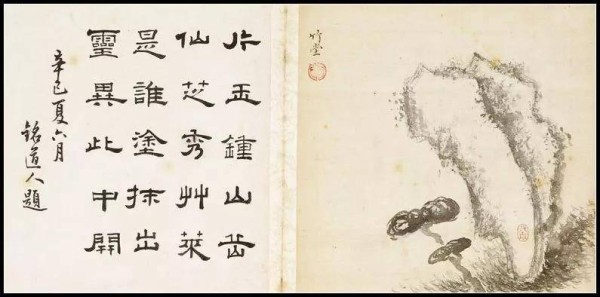 竹堂
片玉鍾山岳
仙芝秀艸萊
是誰塗抹出
靈異此中開
辛巳夏六月
銘道人題